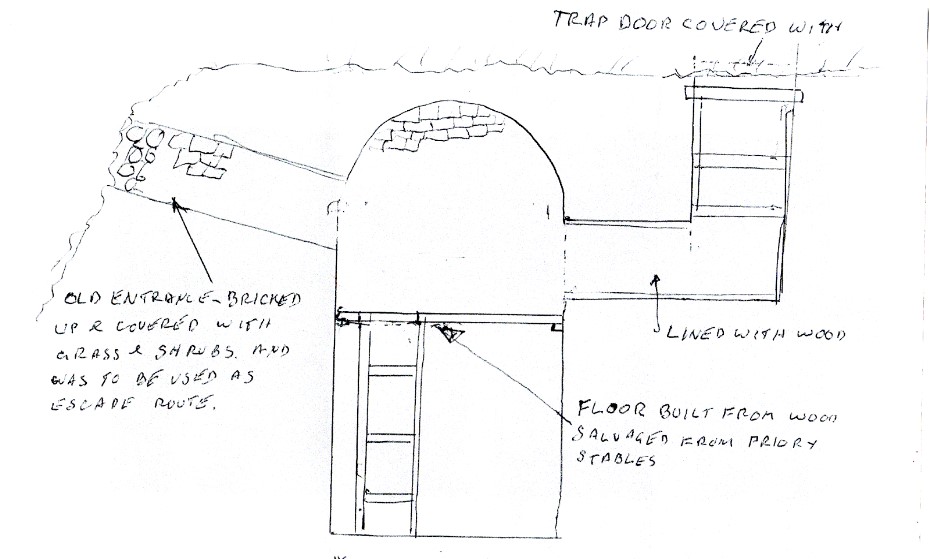 TRAP DOOR COVERED WITH
OLD ENTRANCE-BRICKED
UP & COVERED WITH
GRASS & SHRUBS. AND
WAS TO BE USED AS
ESCAPE ROUTE.
LINED WITH WOOD
FLOOR BUILT FROM WOOD
SALVAGED FROM PRIORY
STABLES